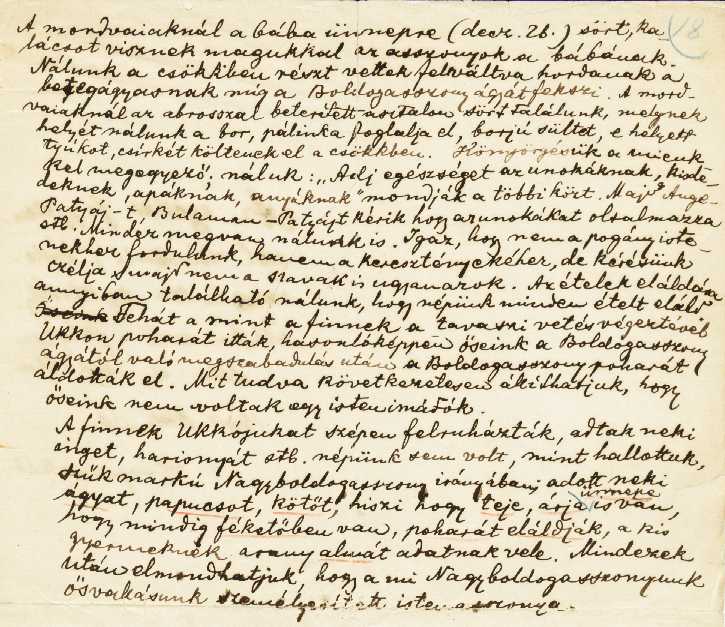 18
A mordvaiaknál a bába ünnepre (decz. 26.) sört, ka-
lácsot visznek magukkal az asszonyok a bábának.
Nálunk a csökkben részt vettek felváltva hordanak a
betegágyasnak míg a Boldogasszony ágyát fekszi. A mord-
vaiaknál az abrosszal beterített asztalon sört találunk, melynek
helyét nálunk a bor, pálinka foglalja el, borjú sültet, e helyett
tyúkot, csirkét költenek el a csökkben. Könyörgésük a mienk
kel megegyező. náluk: „Adj egészséget az unokáknak, kisde-
deknek, apáknak, anyáknak" mondják a többi közt. Majd Ange-
Patyáj-t, Bulaman-Patyájt kérik hogy az unokákat oltalmazza
stb. Mindez megvan nálunk is. Igaz, hogy nem a pogány iste-
nekhez fordulunk, hanem a keresztényekéhez, de kérésünk
czélja s majd nem a szavak is ugyanazok. Az ételek eláldása
annyiban található nálunk, hogy népünk minden ételt eláld.
Őseink Tehát a mint a finnek a tavaszi vetés végeztével
Ukkon poharát itták, hasonlóképpen őseink a Boldogasszony
ágyától való megszabadulás után a Boldogasszony poharát
áldották el. Mit tudva következetesen állíthatjuk, hogy
őseink nem voltak egy isten imádók.
A finnek Ukkójukat szépen felruházták, adtak neki
inget, harisnyát stb. népünk sem volt, mint hallottuk,
szűk markú Nagyboldogasszony irányában; adott neki
ágyat, papucsot, kötőt, hiszi hogy teje, árja, ünnepe is van,
hogy mindig feketében van, poharát eláldják, a kis
gyermeknek arany almát adatnak vele. Mindezek
után elmondhatjuk, hogy a mi Nagyboldogasszonyunk
ősvallásunk személyesített isten asszonya.